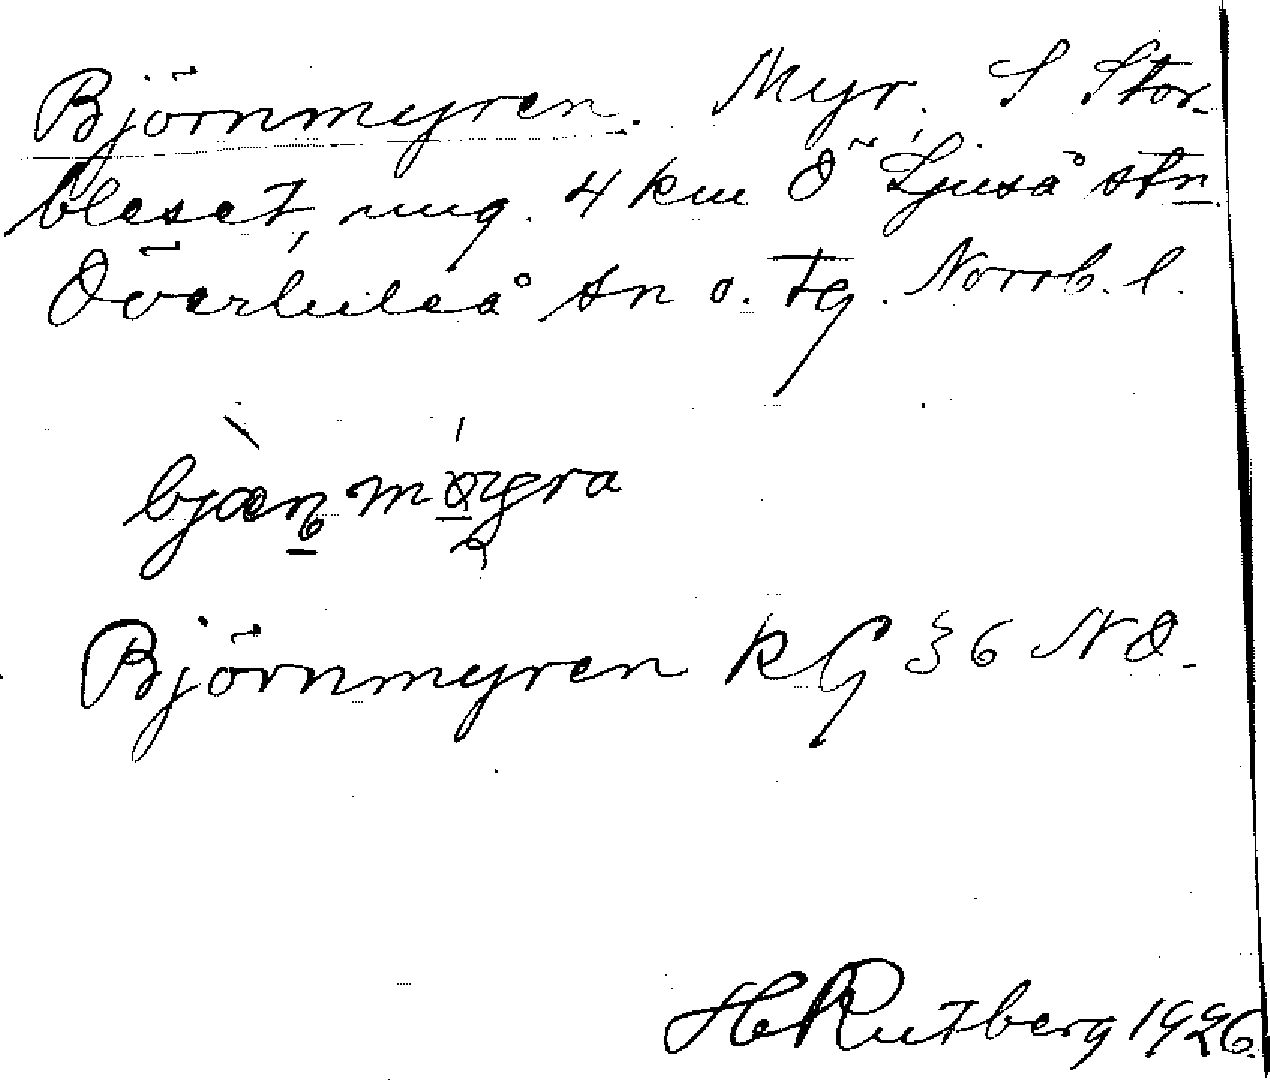 Björnmyren. Myr. S Stor-
bleset, ung. 4 km Ö Ljuså stn
Överluleå sn o. tg. Norrb. l.
Björnmyren KG 36 NO.
H Rutberg 1926.